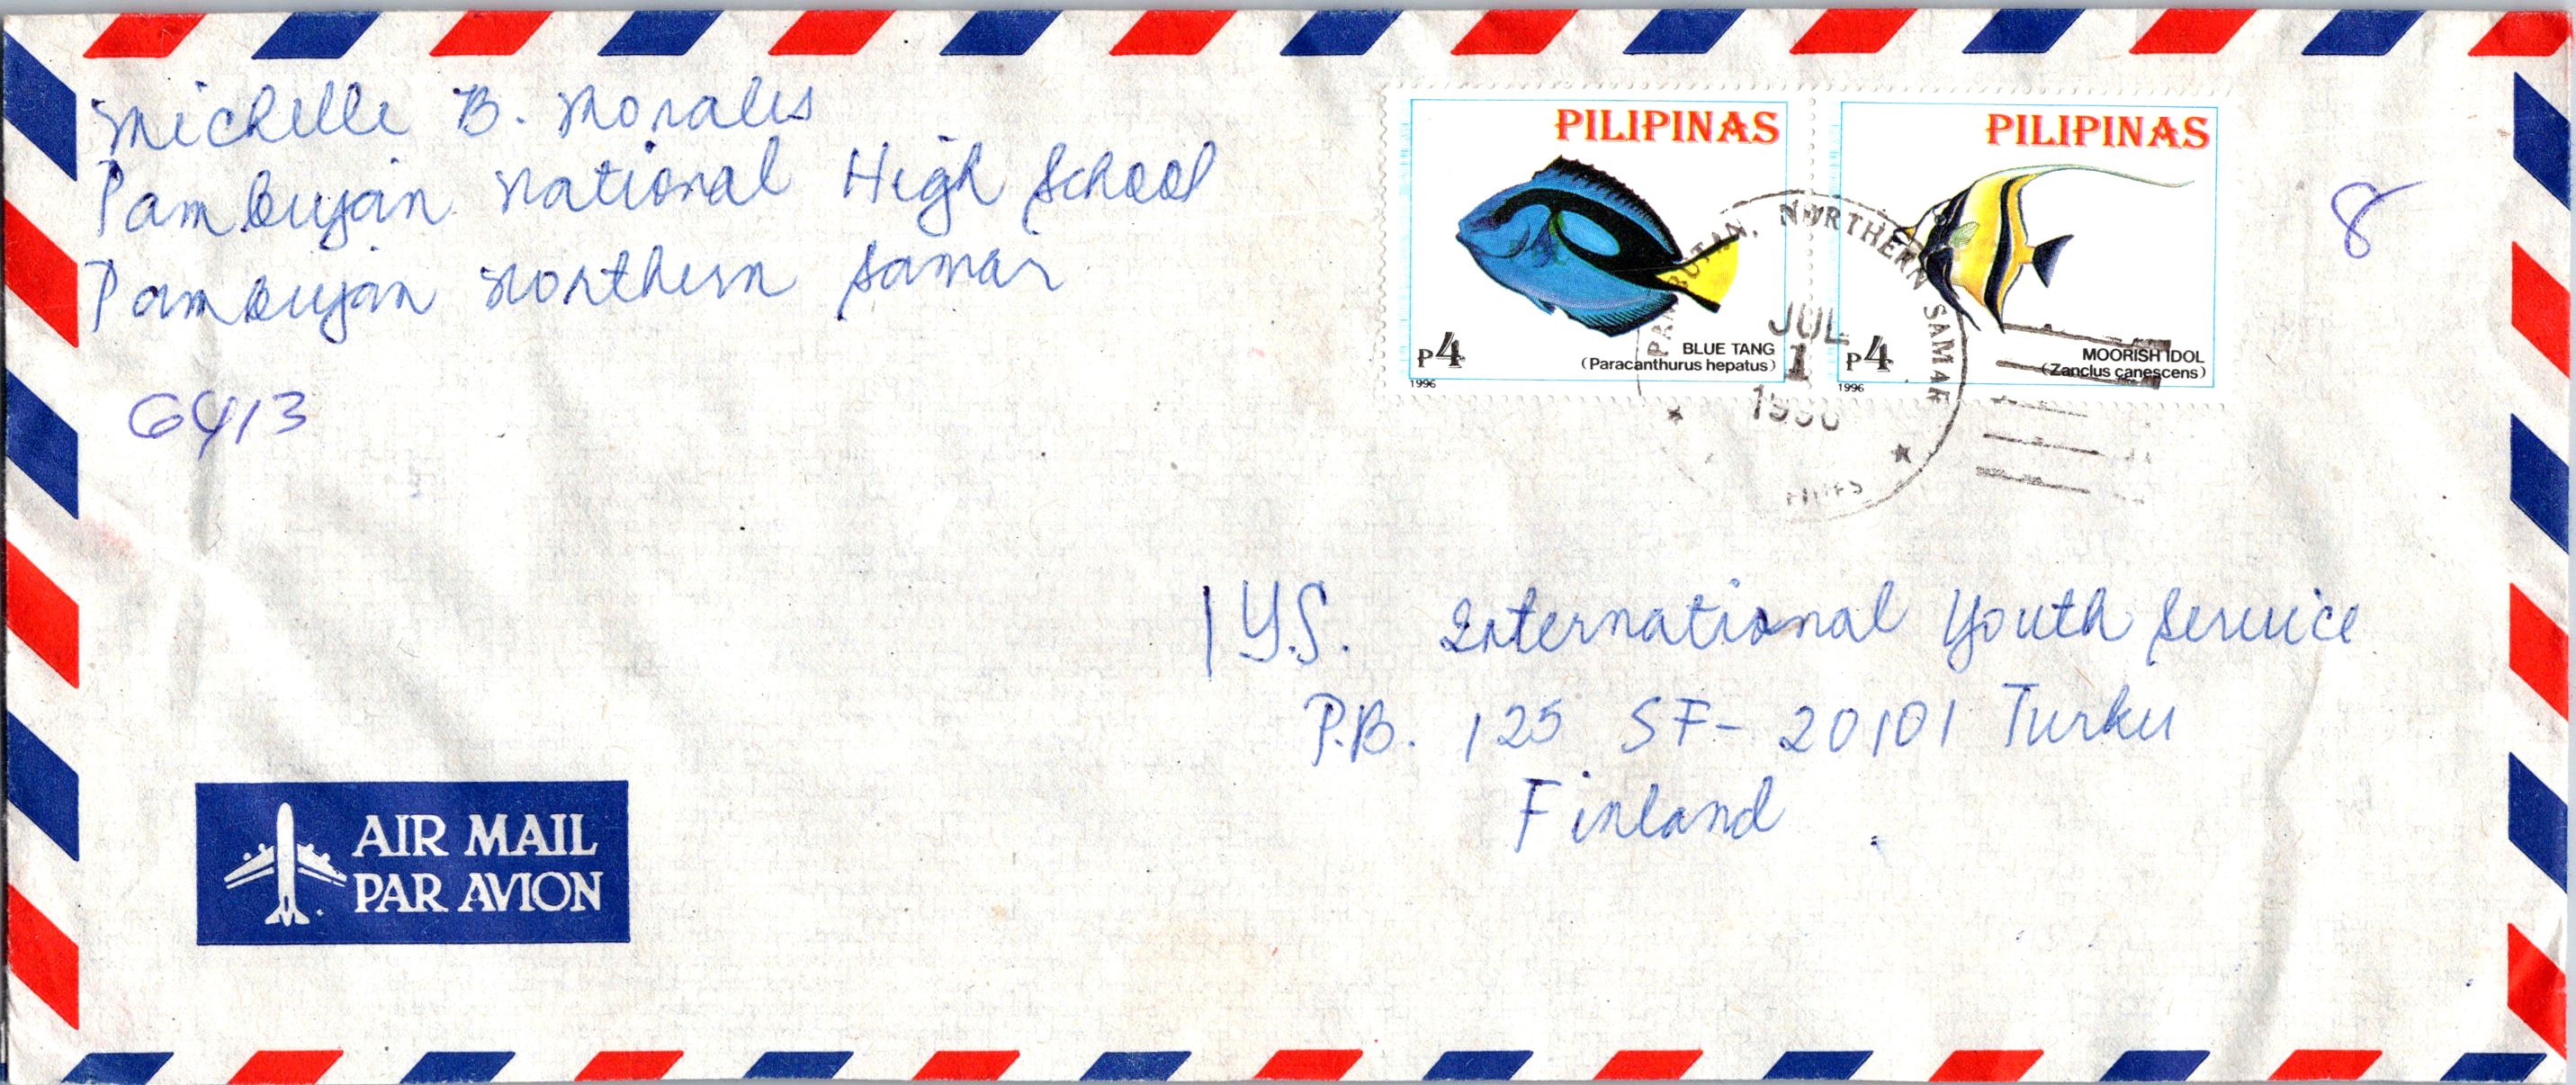 Michelle B. Morales
Pambujan National High School
Pambujan Northern Samar
6413
PILIPINAS
BLUE TANG
(Paracanthurus hepatus)
P4
1996
PILIPINAS
MOORISH IDOL
(Zanclus canescens)
P4
1996
8
NORTHERN SAMAR
JUL
1
IYS. International Youth Service
P.B. 125 SF- 20101 Turku
Finland
AIR MAIL
PAR AVION